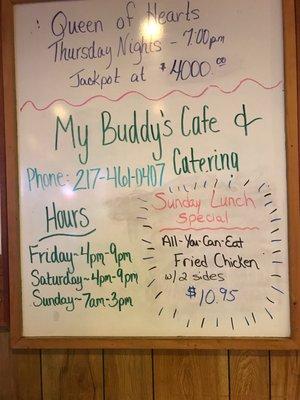 Queen of Hearts
Thursday Nights - 7:00pm
Jackpot at $4000.00
My Buddy's Cafe &
Catering
Phone: 217-461-0407
Hours
Friday~4pm-9pm
Saturday~4pm-9pm
Sunday~7am-3pm
Sunday Lunch
Special
All-You-Can-Eat
Fried Chicken
w/2 sides
$10.95